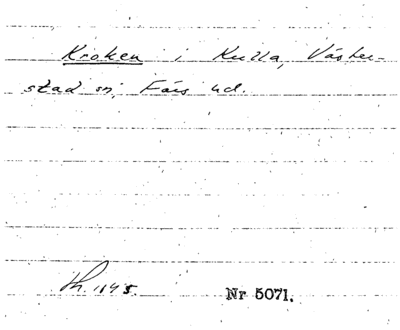 Kroken i Kulla, Väster-
stad sn, Färs hd.
Nr 5071.